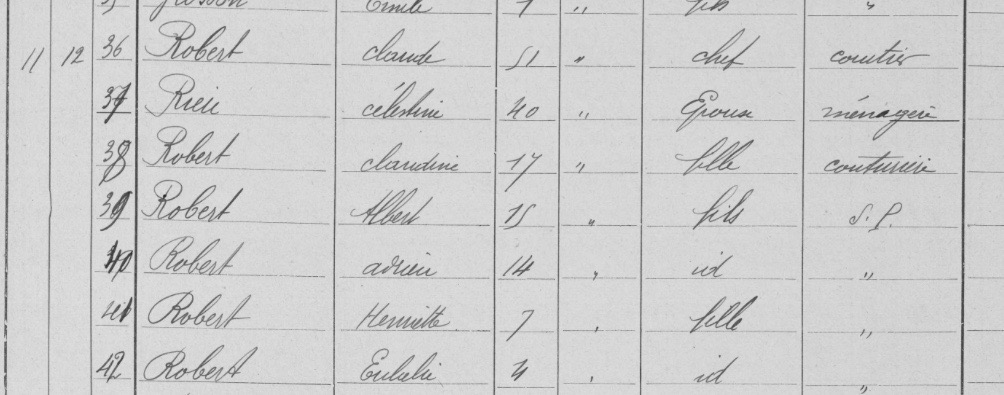 Émile 7 " fils "
11 12 36 Robert claude 51 " chef courtier
37 Rieu célestine 40 " Epouse ménagère
38 Robert claudine 17 " fille couturière
39 Robert Albert 15 " fils S.P.
40 Robert adrien 14 " id "
41 Robert Henriette 7 " fille "
42 Robert Eulalie 4 " id "